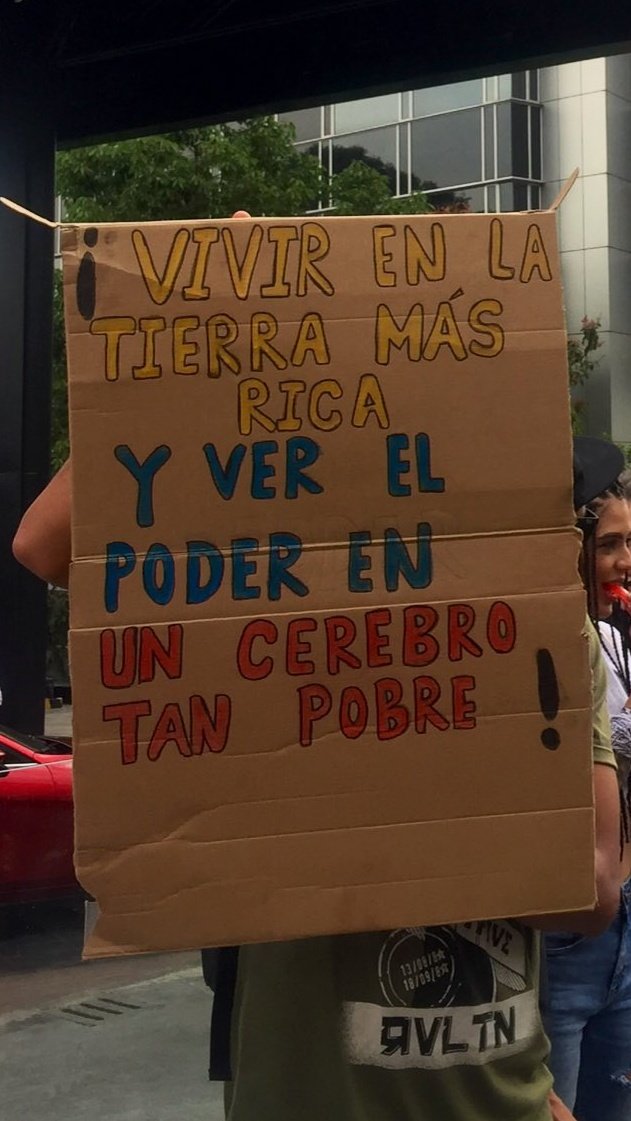 ¡VIVIR EN LA
TIERRA MÁS
RICA
Y VER EL
PODER EN
UN CEREBRO
TAN POBRE!
13/08/8
18/09/8
ЯVLTN